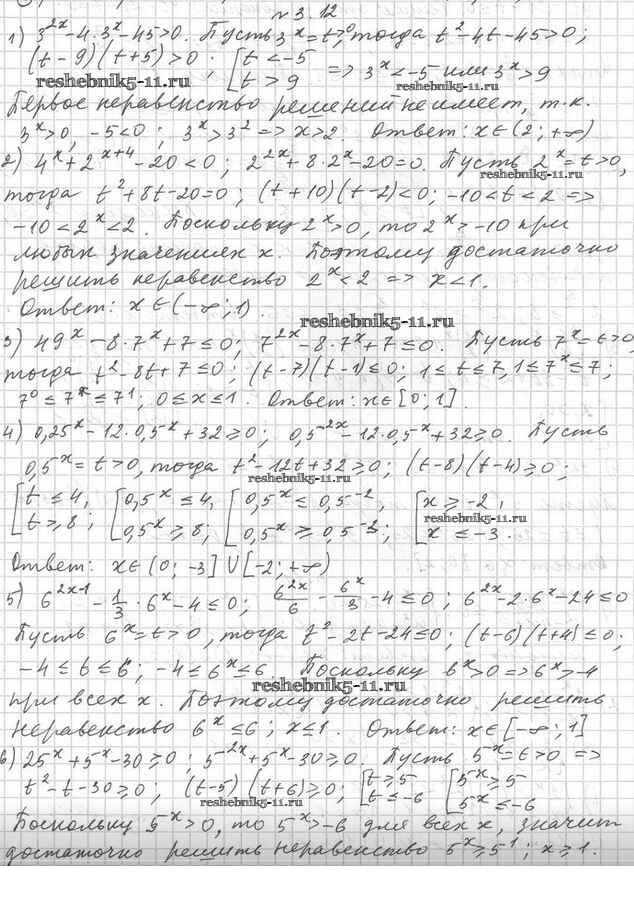 № 3.12
1) 3^{2x} - 4·3^x - 45 > 0. Пусть 3^x = t > 0, тогда t² - 4t - 45 > 0;
(t - 9)(t + 5) > 0; [t < -5 t > 9 => 3^x < -5 или 3^x > 9
reshebnik5-11.ru reshebnik5-11.ru
Первое неравенство решений не имеет, т.к.
3^x > 0, -5 < 0; 3^x > 3² => x > 2. Ответ: x ∈ (2; +∞)
2) 4^x + 2^{x+4} - 20 < 0; 2^{2x} + 8·2^x - 20 = 0. Пусть 2^x = t > 0,
reshebnik5-11.ru
тогда t² + 8t - 20 = 0; (t + 10)(t - 2) < 0; -10 < t < 2 =>
-10 < 2^x < 2. Поскольку 2^x > 0, то 2^x > -10 при
любых значениях x. Поэтому достаточно
решить неравенство 2^x < 2 => x < 1.
Ответ: x ∈ (-∞; 1).
reshebnik5-11.ru
3) 49^x - 8·7^x + 7 ≤ 0; 7^{2x} - 8·7^x + 7 ≤ 0. Пусть 7^x = t > 0,
тогда t² - 8t + 7 ≤ 0; (t - 7)(t - 1) ≤ 0; 1 ≤ t ≤ 7, 1 ≤ 7^x ≤ 7;
7^0 ≤ 7^x ≤ 7^1; 0 ≤ x ≤ 1. Ответ: x ∈ [0; 1].
4) 0,25^x - 12·0,5^x + 32 ≥ 0; 0,5^{2x} - 12·0,5^x + 32 ≥ 0. Пусть
0,5^x = t > 0, тогда t² - 12t + 32 ≥ 0; (t - 8)(t - 4) ≥ 0;
reshebnik5-11.ru
[t ≤ 4, [0,5^x ≤ 4, [0,5^x ≤ 0,5^{-2}, [x ≥ -2,
reshebnik5-11.ru
t ≥ 8; 0,5^x ≥ 8; 0,5^x ≥ 0,5^{-3}; x ≤ -3.
Ответ: x ∈ (0; -3] ∪ [-2; +∞)
5) 6^{2x-1} - 1/3·6^x - 4 ≤ 0; 6^{2x}/6 - 6^x/3 - 4 ≤ 0; 6^{2x} - 2·6^x - 24 ≤ 0
Пусть 6^x = t > 0, тогда t² - 2t - 24 ≤ 0; (t - 6)(t + 4) ≤ 0;
-4 ≤ t ≤ 6; -4 ≤ 6^x ≤ 6. Поскольку 6^x > 0 => 6^x > -4
reshebnik5-11.ru
при всех x. Поэтому достаточно решить
неравенство 6^x ≤ 6; x ≤ 1. Ответ: x ∈ [-∞; 1]
6) 25^x + 5^x - 30 ≥ 0; 5^{2x} + 5^x - 30 ≥ 0. Пусть 5^x = t > 0 =>
t² - t - 30 ≥ 0; (t - 5)(t + 6) ≥ 0; [t ≥ 5 t ≤ -6 [5^x ≥ 5 5^x ≤ -6
reshebnik5-11.ru
Поскольку 5^x > 0, то 5^x > -6 для всех x, значит
достаточно решить неравенство 5^x ≥ 5^1; x ≥ 1.